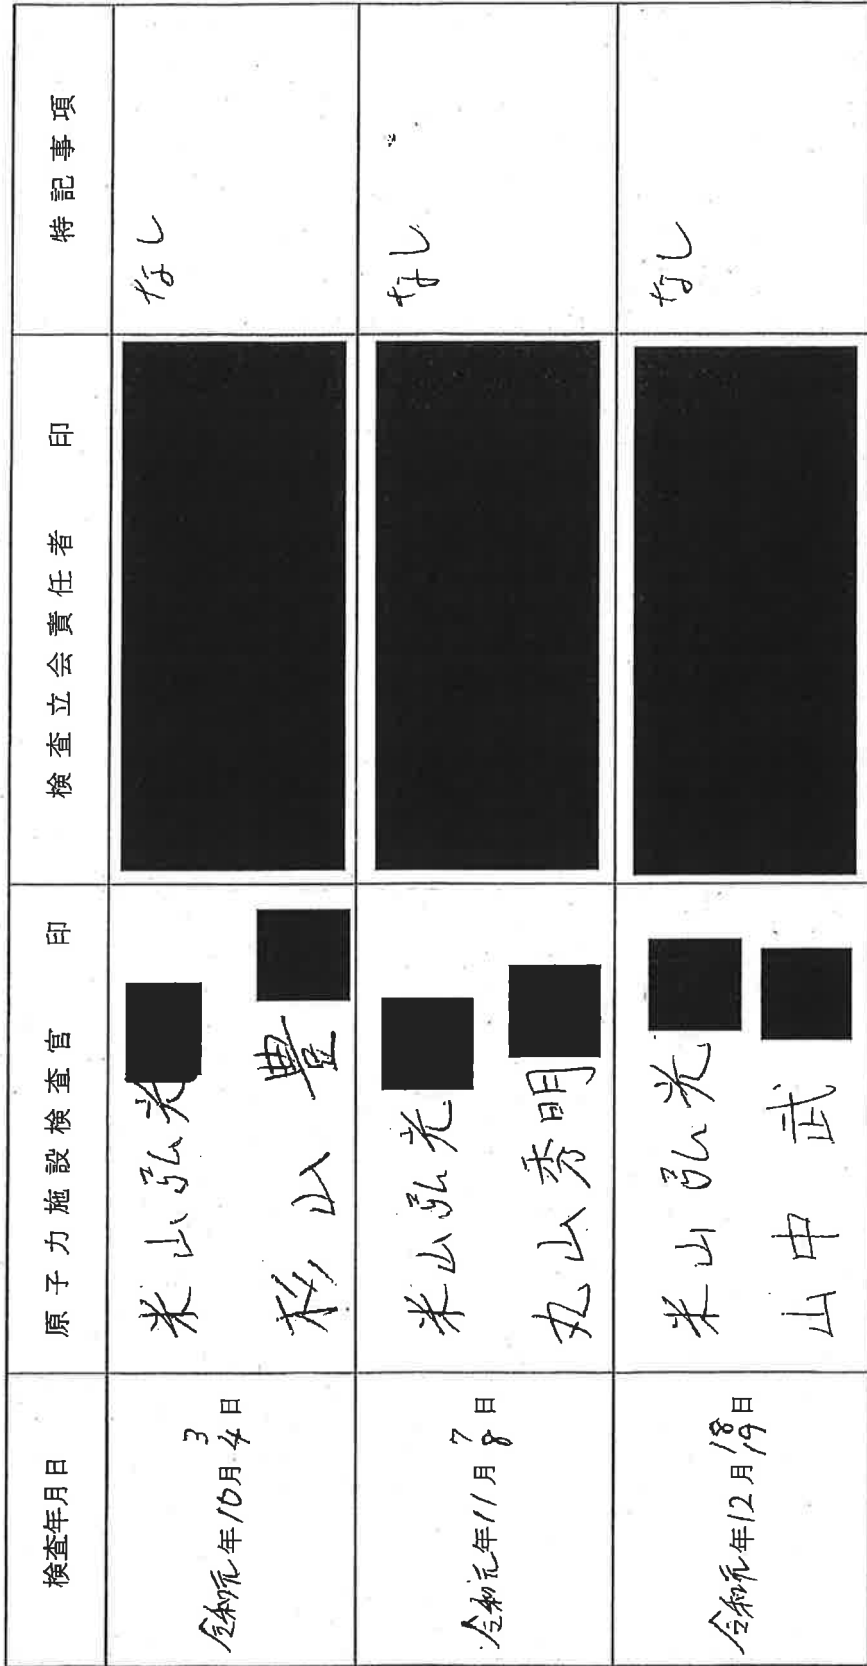 検査年月日
原子力施設検査官 印
検査立会責任者 印
特記事項
令和元年10月3
4日
米山弘光
杉山 豊
なし
令和元年11月7
8日
米山弘光
丸山秀明
なし
令和元年12月18
19日
米山弘光
山中 武
なし